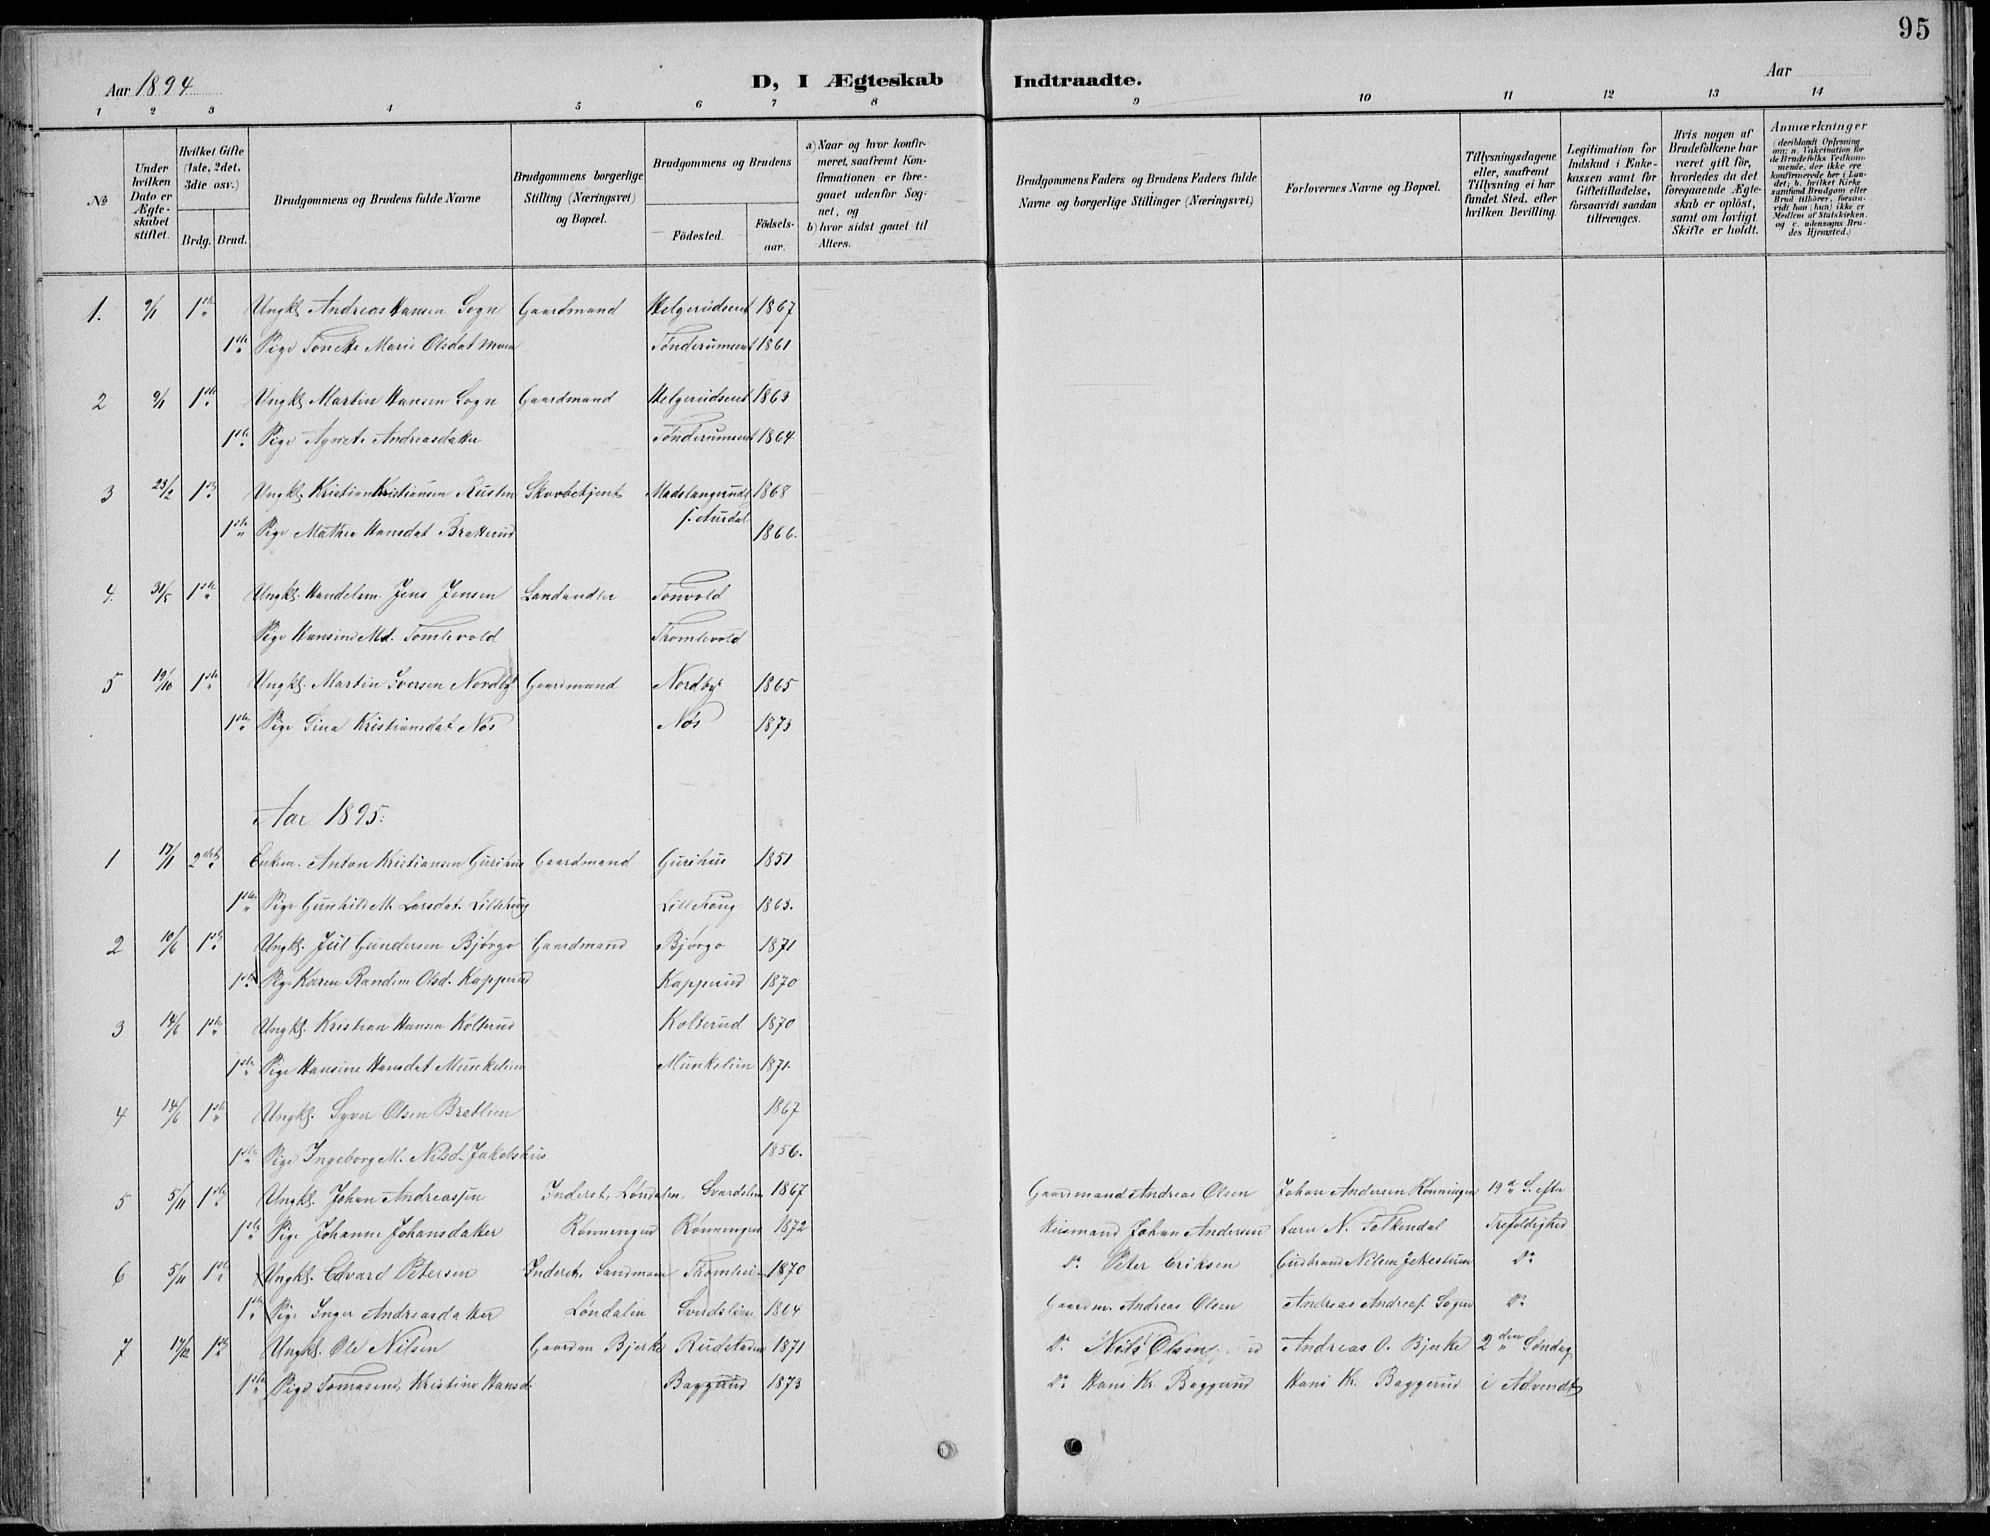 95
Aar 1894
D, I Ægteskab Indtraadte.
Aar
1 2 3 4 5 6 7 8 9 10 11 12 13 14
No
Under hvilken Dato er Ægteskabet stiftet.
Hvilket Gifte (1ste, 2det, 3die osv.)
Brdg. Brud.
Brudgommens og Brudens fulde Navne
Brudgommens borgerlige Stilling (Næringsvei) og Bopæl.
Brudgommens og Brudens
Fødested.
Fødselsaar.
a) Naar og hvor konfirmeret, saafremt Konfirmationen er foregaaet udenfor Sognet, og
b) hvor sidst gaaet til Alters.
Brudgommens Faders og Brudens Faders fulde Navne og borgerlige Stillinger (Næringsvei)
Forlovernes Navne og Bopæl.
Tillysningsdagene eller, saafremt Tillysning ei har fundet Sted, efter hvilken Bevilling.
Legitimation for Indskud i Enkekassen samt for Giftetilladelse, forsaavidt saadan tiltrænges.
Hvis nogen af Brudefolkene har været gift før, hvorledes da det foregaaende Ægteskab er opløst, samt om lovligt Skifte er holdt.
Anmærkninger (deriblandt Oplysning om: a. Vakcination for de Brudefolks Vedkommende, der ikke ere konfirmerede her i Landet; b. hvilket Kirkesamfund Brudgom eller Brud tilhører, forsaavidt han (hun) ikke er Medlem af Statskirken, og c. udensogns Brudes Hjemsted.)
1. 9/1 1ste Ungkl. Andreas Hansen Sogn Gaardmand Helgerudseiet 1867
1ste Pige Tonette Marie Olsdat Moen Tønderumseiet 1861
2 9/1 1ste Ungkl. Martin Hansen Sogn Gaardmand Helgerudseiet 1863
1ste Pige Agnete Andreasdatter Tønderumseiet 1864
3 23/2 1ste Ungkl. Kristian Kristiansen Rusten Skovbetjent Madslangrud 1868
1ste Pige Mathea Hansdat Bratterud s. Aurdal 1866.
4. 31/5 1ste Ungkl. Handelsm. Jens Jensen Landandler Tonvold
Pige Hansine Md. Tomlevold Thomlevold
5 19/10 1ste Ungkl. Martin Iversen Nordby Gaardmand Nordby 1865
1ste Pige Gina Kristiansdat Nøs Nøs 1873
Aar 1895.
1 17/1 2det Enkem. Anton Kristiansen Gurihus Gaardmand Gurihus 1851
1ste Pige Gunhild M. Larsdat. Lillehaug Lillehaug 1863.
2 10/6 1ste Ungkl. Jul Gundersen Bjørgo Gaardmand Bjørgo 1871
1ste Pige Karen Randine Olsd. Kapperud Kapperud 1870
3 14/6 1ste Ungkl. Kristian Hansen Kolterud Kolterud 1870
1ste Pige Hansine Hansdat Munkelien Munkelien 1871.
4 14/6 1ste Ungkl. Syver Olsen Bratlien 1867
1ste Pige Ingeborg M. Nilsd. Jakobshus 1856.
5 5/11 1ste Ungkl. Johan Andreassen Inderst, Løndalen, Sverdslien 1867 Gaardmand Andreas Olsen Johan Andersen Rønningen 19de S. efter
1ste Pige Johanne Johansdatter Rønningen Rønningen 1872 Husmand Johan Andersen Lars N. Falkendal Trefoldighed
6 5/11 1ste Ungkl. Edvard Petersen Inderst, Sandmoen Thomlevien 1870 Do Peter Eriksen Gudbrand Nilsen Do
1ste Pige Inger Andreasdatter Løndalen Sverdslien 1864 Gaardm. Andreas Olsen Andreas Andreas. Sagen Do
7 17/12 1ste Ungkl. Ole Nilsen Gaardm Bjerke Rudstaden 1871 Do Nils Olsen Andreas O. Bjerke 2den Søndag
1ste Pige Tomasine Kristine Hansd. Baggerud 1873 Do Hans Kr. Baggerud Hans Kr. Baggerud i Advendt